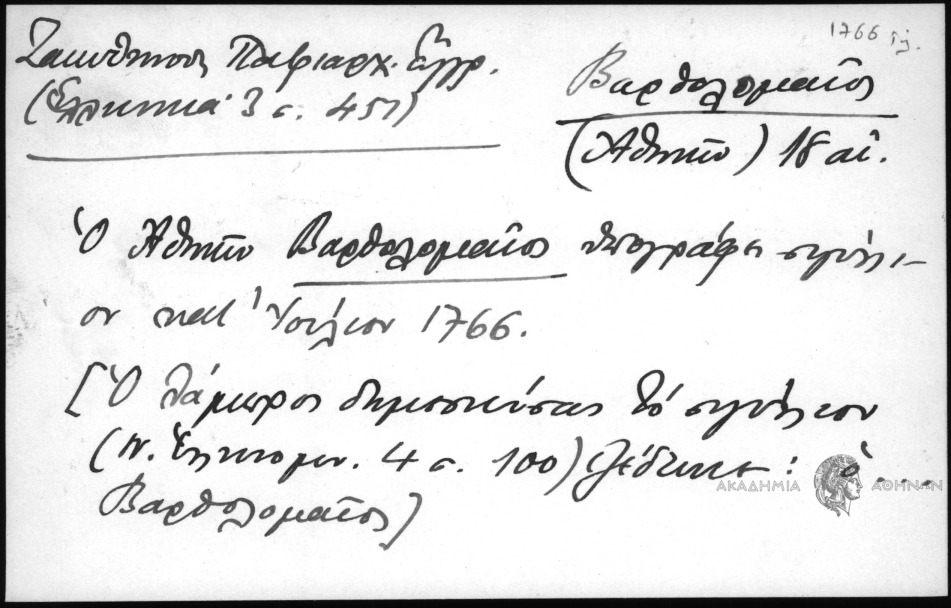 1766
Ζακυθηνοῦ Πατριαρχ. Ἔγγρ.
(Ἑλληνικά 3 σ. 451)
Βαρθολομαῖος
(Ἀθηνῶν) 18 αἰ.
Ὁ Ἀθηνῶν Βαρθολομαῖος ὑπογράφει σιγίλλι-
ον κατ' Ἰούλιον 1766.
[Ὁ Λάμπρος δημοσιεύσας τό σιγίλλιον
(Ν. Ἑλληνομν. 4 σ. 100) ἐξέδωκε: ὁ ...
Βαρθολομαῖος]
ΑΚΑΔΗΜΙΑ ΑΘΗΝΩΝ